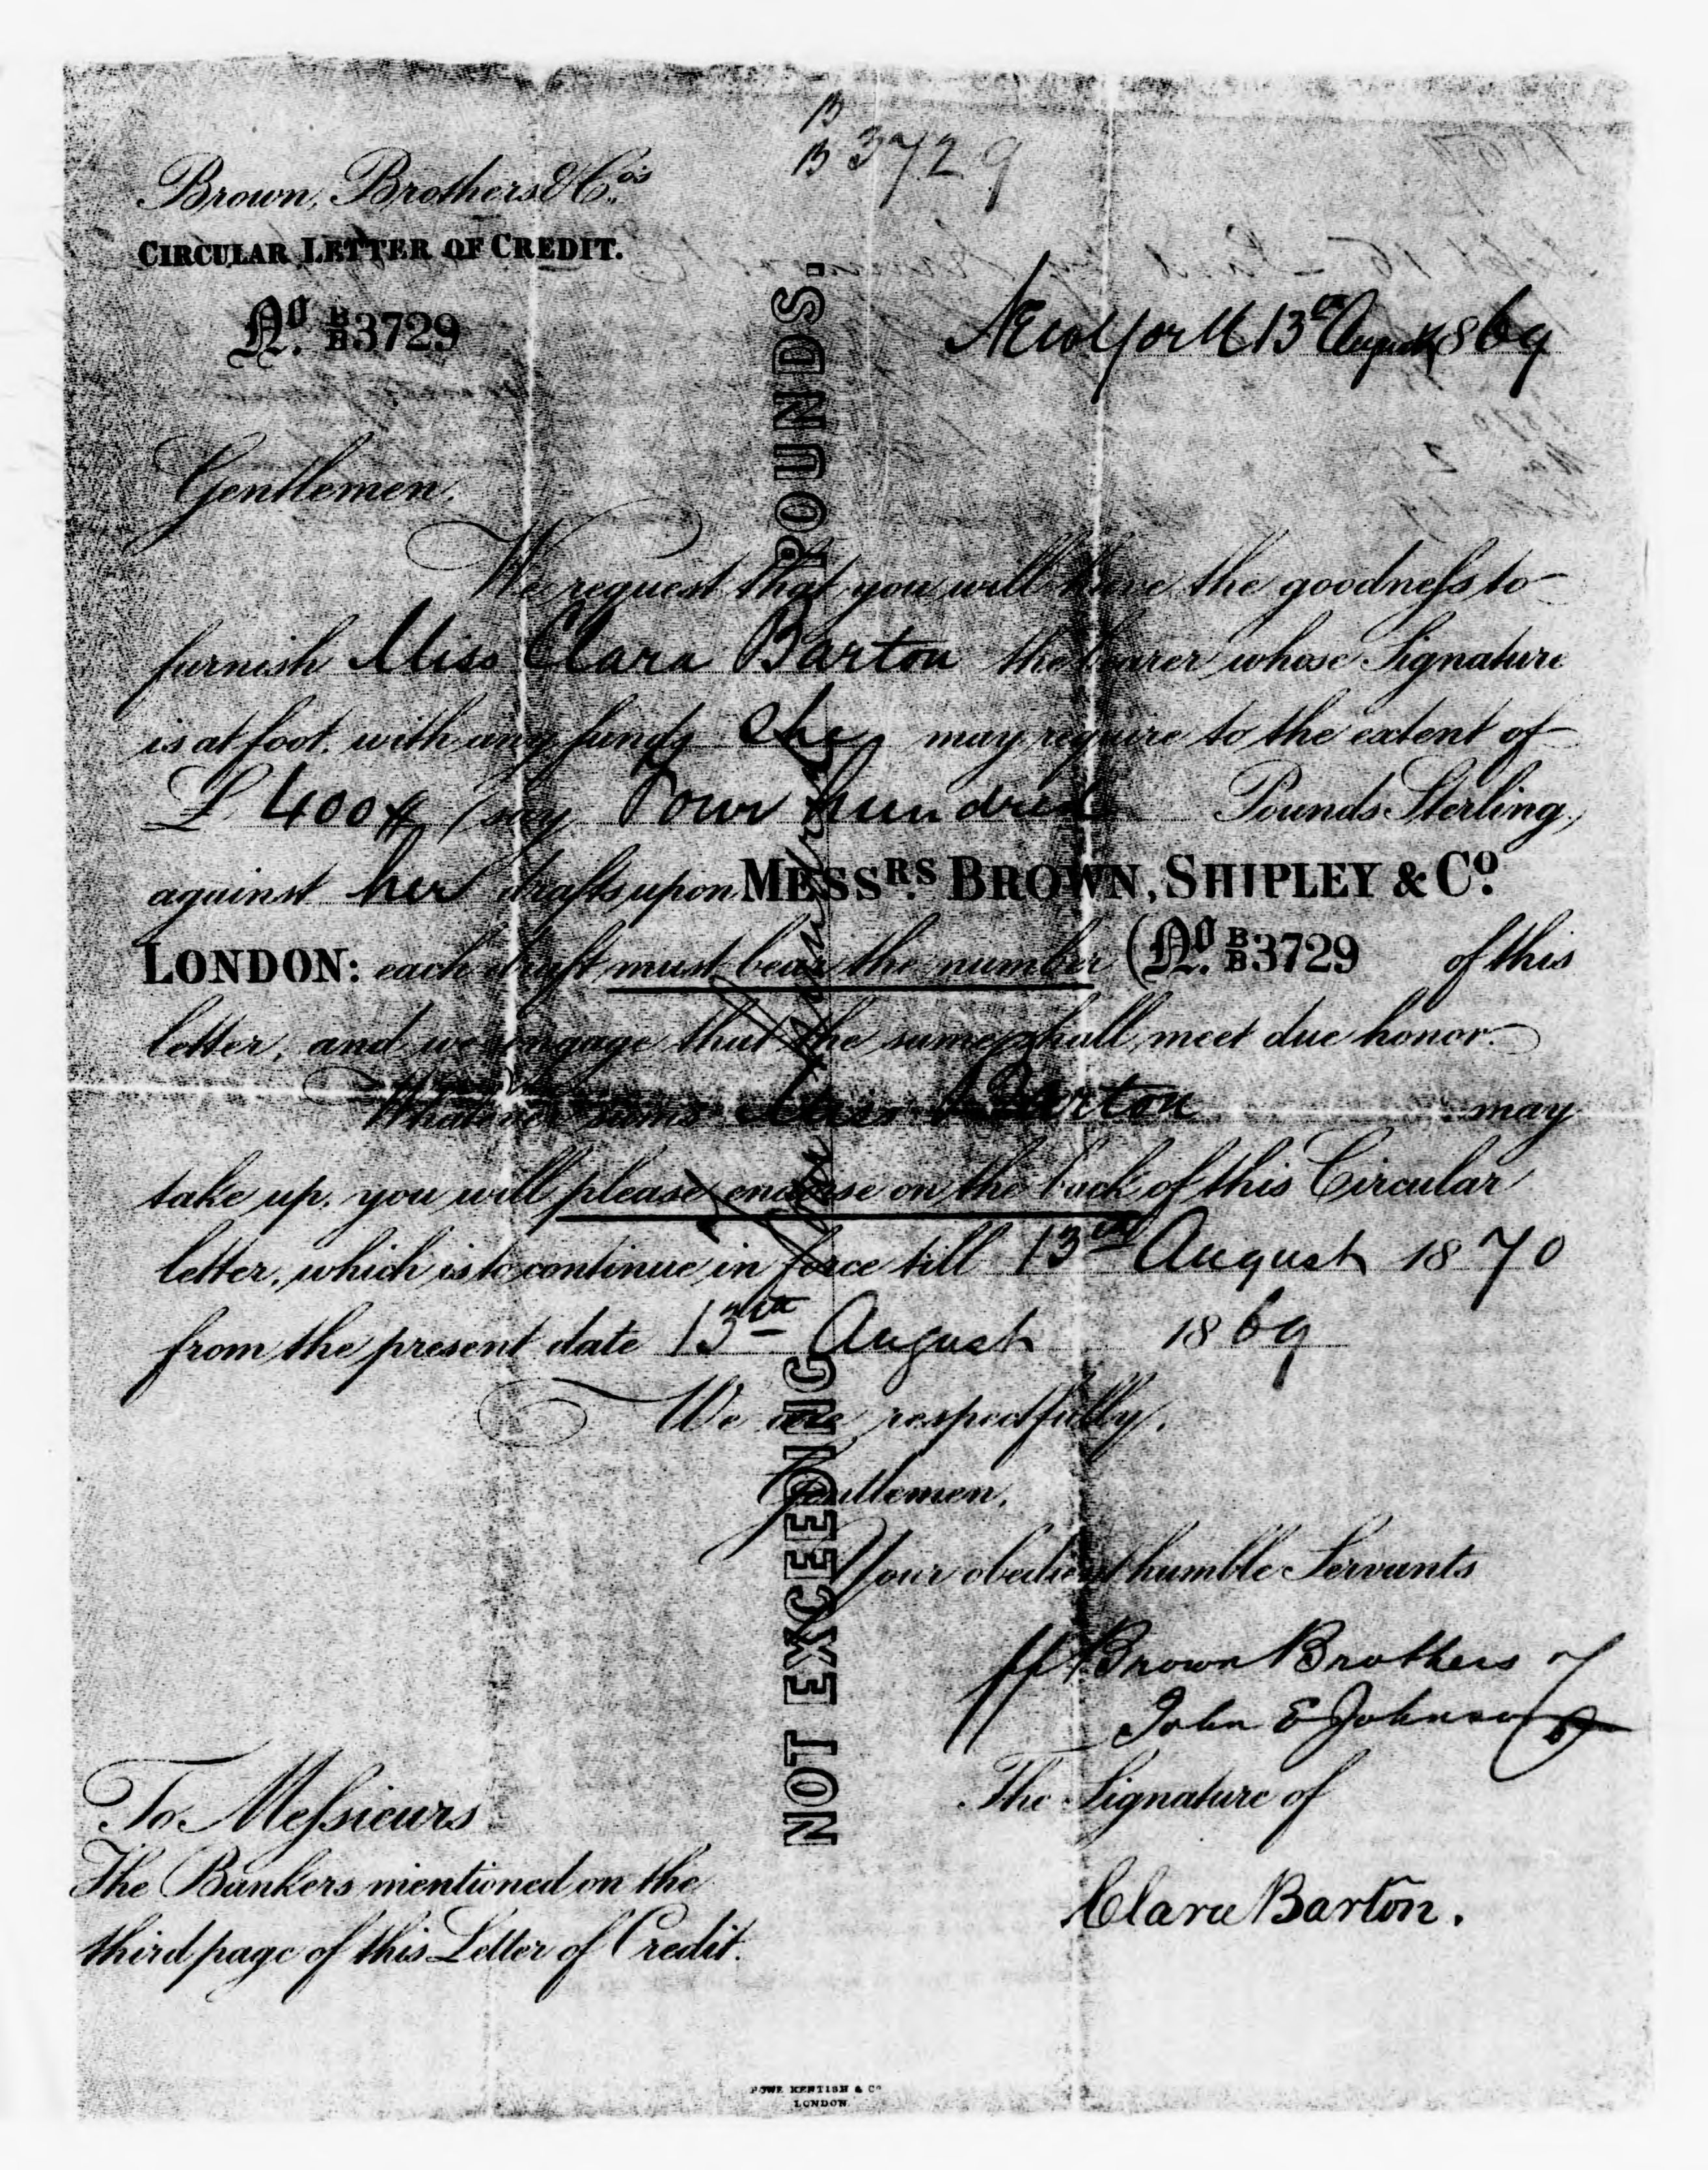 B
B 3729
Brown, Brothers & Co's
CIRCULAR LETTER OF CREDIT.
No. B/B 3729
New York 13th August 1869
Gentlemen.
We request that you will have the goodness to
furnish Miss Clara Barton the bearer whose Signature
is at foot, with any funds She may require to the extent of
£ 400 (say Four hundred Pounds Sterling,
against her drafts upon MESSRS. BROWN, SHIPLEY & CO.
LONDON: each draft must bear the number (No. B/B 3729 of this
letter, and we engage that the same shall meet due honor.
Whatever sums Miss Barton may
take up, you will please endorse on the back of this Circular
letter, which is to continue in force till 13th August 1870
from the present date 13th August 1869
We are respectfully,
Gentlemen,
Your obedient humble Servants
pp. Brown Brothers
John E Johnson
The Signature of
Clara Barton.
To Messieurs
The Bankers mentioned on the
third page of this Letter of Credit.
NOT EXCEEDING Four hundred POUNDS.
KENTISH & Co
LONDON